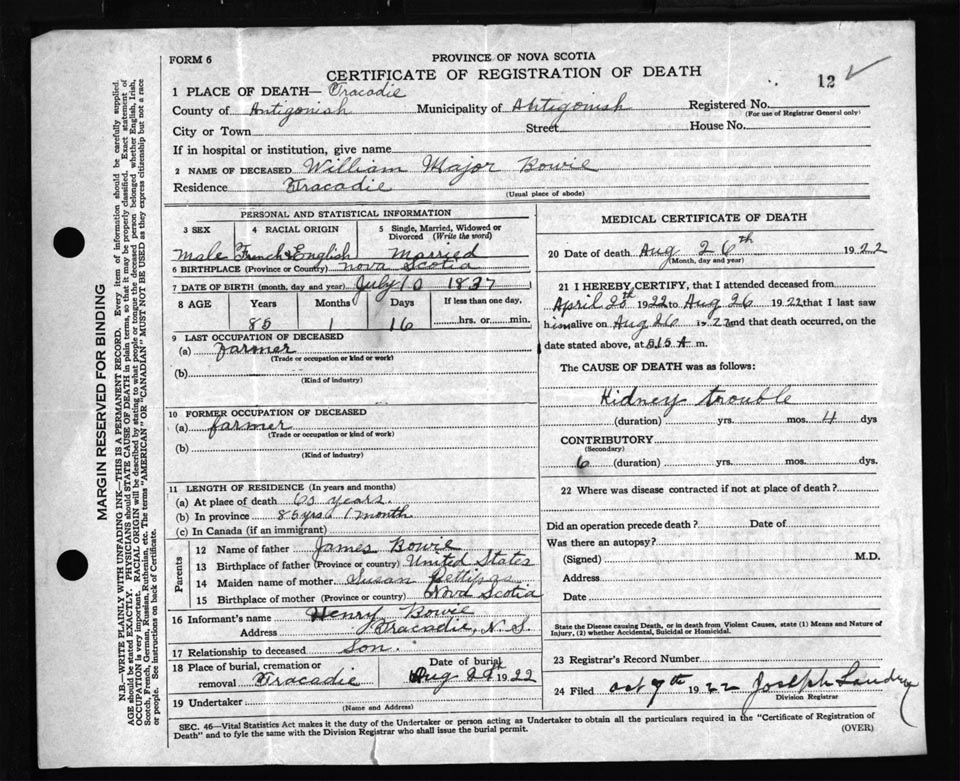 FORM 6
PROVINCE OF NOVA SCOTIA
CERTIFICATE OF REGISTRATION OF DEATH
12 ✓
1 PLACE OF DEATH— Tracadie
County of Antigonish Municipality of Antigonish Registered No.
(For use of Registrar General only)
City or Town Street House No.
If in hospital or institution, give name
2 NAME OF DECEASED William Major Bowie
Residence Tracadie
(Usual place of abode)
PERSONAL AND STATISTICAL INFORMATION
3 SEX 4 RACIAL ORIGIN 5 Single, Married, Widowed or Divorced (Write the word)
Male French & English Married
6 BIRTHPLACE (Province or Country) Nova Scotia
7 DATE OF BIRTH (month, day and year) July 10 1837
8 AGE Years Months Days If less than one day,
85 1 16 hrs. or min.
9 LAST OCCUPATION OF DECEASED
(a) farmer
(Trade or occupation or kind of work)
(b)
(Kind of industry)
10 FORMER OCCUPATION OF DECEASED
(a) farmer
(Trade or occupation or kind of work)
(b)
(Kind of industry)
11 LENGTH OF RESIDENCE (In years and months)
(a) At place of death years.
(b) In province 85 yrs 1 month
(c) In Canada (if an immigrant)
Parents
12 Name of father James Bowie
13 Birthplace of father (Province or country) United States
14 Maiden name of mother Susan
15 Birthplace of mother (Province or Country) Nova Scotia
16 Informant's name Henry Bowie
Address Tracadie, N. S.
17 Relationship to deceased Son.
18 Place of burial, cremation or removal Tracadie Date of burial Aug 1922
19 Undertaker
(Name and Address)
MEDICAL CERTIFICATE OF DEATH
20 Date of death Aug 26th 1922
(Month, day and year)
21 I HEREBY CERTIFY, that I attended deceased from
April 1922 to Aug 26 1922 that I last saw
him alive on Aug 26 1922 and that death occurred, on the
date stated above, at 8.15 A m.
The CAUSE OF DEATH was as follows:
Kidney trouble
(duration) yrs. mos. 4 dys
CONTRIBUTORY
(Secondary)
6 (duration) yrs. mos. dys.
22 Where was disease contracted if not at place of death?
Did an operation precede death? Date of
Was there an autopsy?
(Signed) M.D.
Address
Date
State the Disease causing Death, or in death from Violent Causes, state (1) Means and Nature of
Injury, (2) whether Accidental, Suicidal or Homicidal.
23 Registrar's Record Number
24 Filed Oct 7th 1922 Joseph Landry
Division Registrar
SEC. 46—Vital Statistics Act makes it the duty of the Undertaker or person acting as Undertaker to obtain all the particulars required in the "Certificate of Registration of
Death" and to fyle the same with the Division Registrar who shall issue the burial permit.
(OVER)
MARGIN RESERVED FOR BINDING
N.B.—WRITE PLAINLY WITH UNFADING INK—THIS IS A PERMANENT RECORD. Every item of information should be carefully supplied.
AGE should be stated EXACTLY. PHYSICIANS should STATE CAUSE OF DEATH in plain terms, so that it may be properly classified. Exact statement of
OCCUPATION is very important. RACIAL ORIGIN will be described by stating to what people or tongue the deceased person belonged whether English, Irish,
Scotch, French, German, Russian, Ruthenian, etc. The terms "AMERICAN" OR "CANADIAN" MUST NOT BE USED as they express citizenship but not a race
or people. See instructions on back of Certificate.